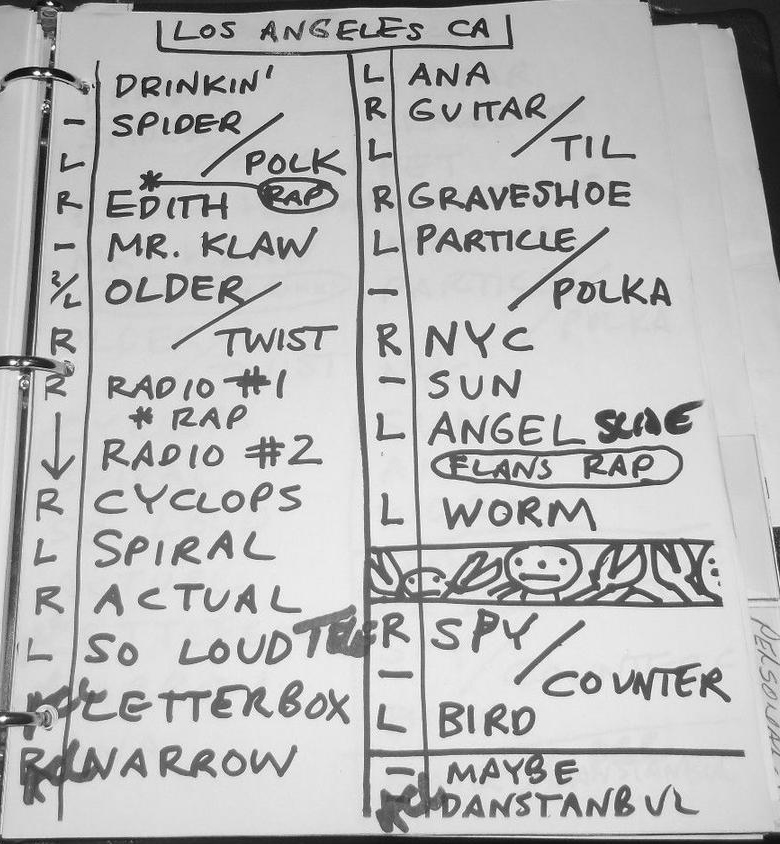 LOS ANGELES CA
DRINKIN'
- SPIDER /
L POLK
R * EDITH RAP
- MR. KLAW
R/L OLDER /
R TWIST
R RADIO #1
* RAP
RADIO #2
R CYCLOPS
L SPIRAL
R ACTUAL
L SO LOUD
LETTERBOX
R NARROW
L ANA
R GUITAR /
L TIL
R GRAVESHOE
L PARTICLE /
- POLKA
R NYC
- SUN
L ANGEL SLIDE
FLANS RAP
L WORM
R SPY /
- COUNTER
L BIRD
- MAYBE
DANSTANBUL